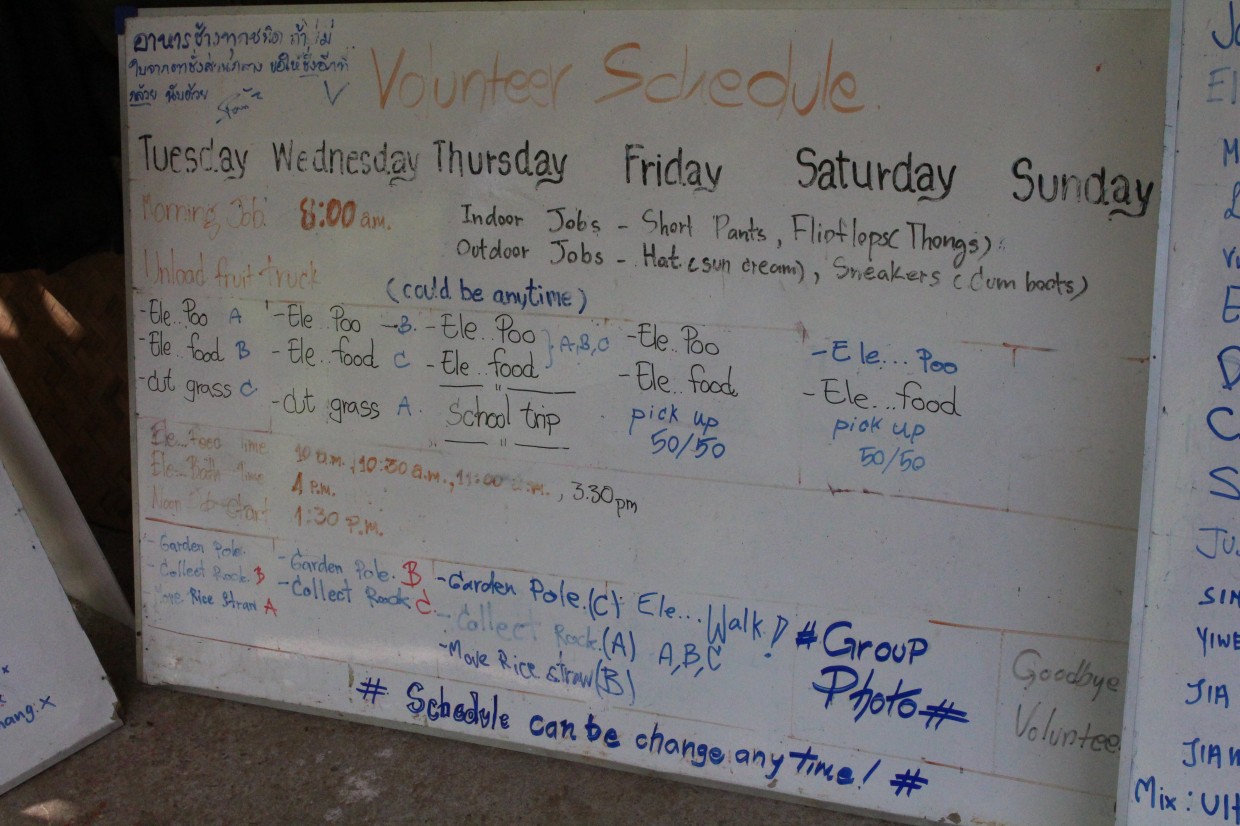 อาหารช้างทุกชนิด ถ้าไม่
กล้วย
Volunteer Schedule
Tuesday Wednesday Thursday Friday Saturday Sunday
Morning Job: 8:00 am.
Indoor Jobs - Short Pants, Flipflops (Thongs)
Outdoor Jobs - Hat (sun cream), Sneakers (Gum boots)
Unload fruit truck
(could be anytime)
-Ele..Poo A -Ele..Poo →B. -Ele..Poo } A,B,C -Ele..Poo -Ele...Poo
-Ele..food B -Ele..food C -Ele..food -Ele..food -Ele...food
-cut grass C -cut grass A. School trip pick up 50/50 pick up 50/50
Ele..Feed time 10 a.m., 10:30 a.m., 11:00 a.m., 3.30pm
Ele..Bath time 4 P.M.
Noon Job start 1:30 P.M.
-Garden Pole. -Garden Pole. B -Garden Pole.(C) Ele...Walk!
-Collect Rock. B -Collect Rock C -Collect Rock.(A) A,B,C
Move Rice Straw A -Move Rice straw(B)
#Group
Photo#
Goodbye
Voluntee
# Schedule can be change any time! #
Jo
El
M
E
D
C
S
JU
SIN
YIWE
JIA
JIA
Mix:
hang:x